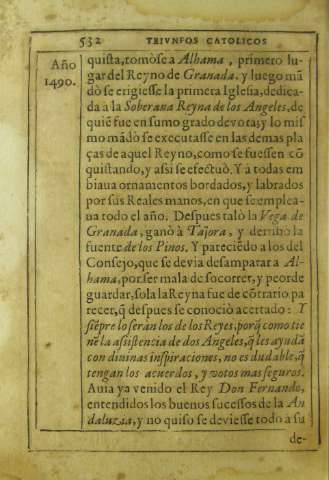 532 TRIVNFOS CATOLICOS
Año
1490.
quista, tomòse a Alhama, primero lu-
gar del Reyno de Granada. y luego mã
dò se erigiesse la primera Iglesia, dedica-
da à la Soberana Reyna de los Angeles, de
quiẽ fue en sumo grado devota; y lo mis
mo mãdò se executasse en las demas pla
ças de aquel Reyno, como se fuessen cõ
quistando, y assi se efectuò. Y à todas em
biaua ornamentos bordados, y labrados
por sus Reales manos, en que se emplea-
ua todo el año. Despues talò la Vega de
Granada, ganò à Tajora, y derribò la
fuente de los Pinos. Y pareciẽdo a los del
Consejo, que se devia desamparar a Al-
hama, por ser mala de socorrer, y peor de
guardar, sola la Reyna fue de cõtrario pa
recer, q̃ despues se conociò acertado: Y
siẽpre lo seràn los de los Reyes, porq̃ como tie
nẽ la assistencia de dos Angeles, q̃ les ayudã
con diuinas inspiraciones, no es dudable, q̃
tengan los acuerdos, y votos mas seguros.
Auia ya venido el Rey Don Fernando,
entendidos los buenos sucessos de la An
daluzia, y no quiso se deviesse todo a su
de-